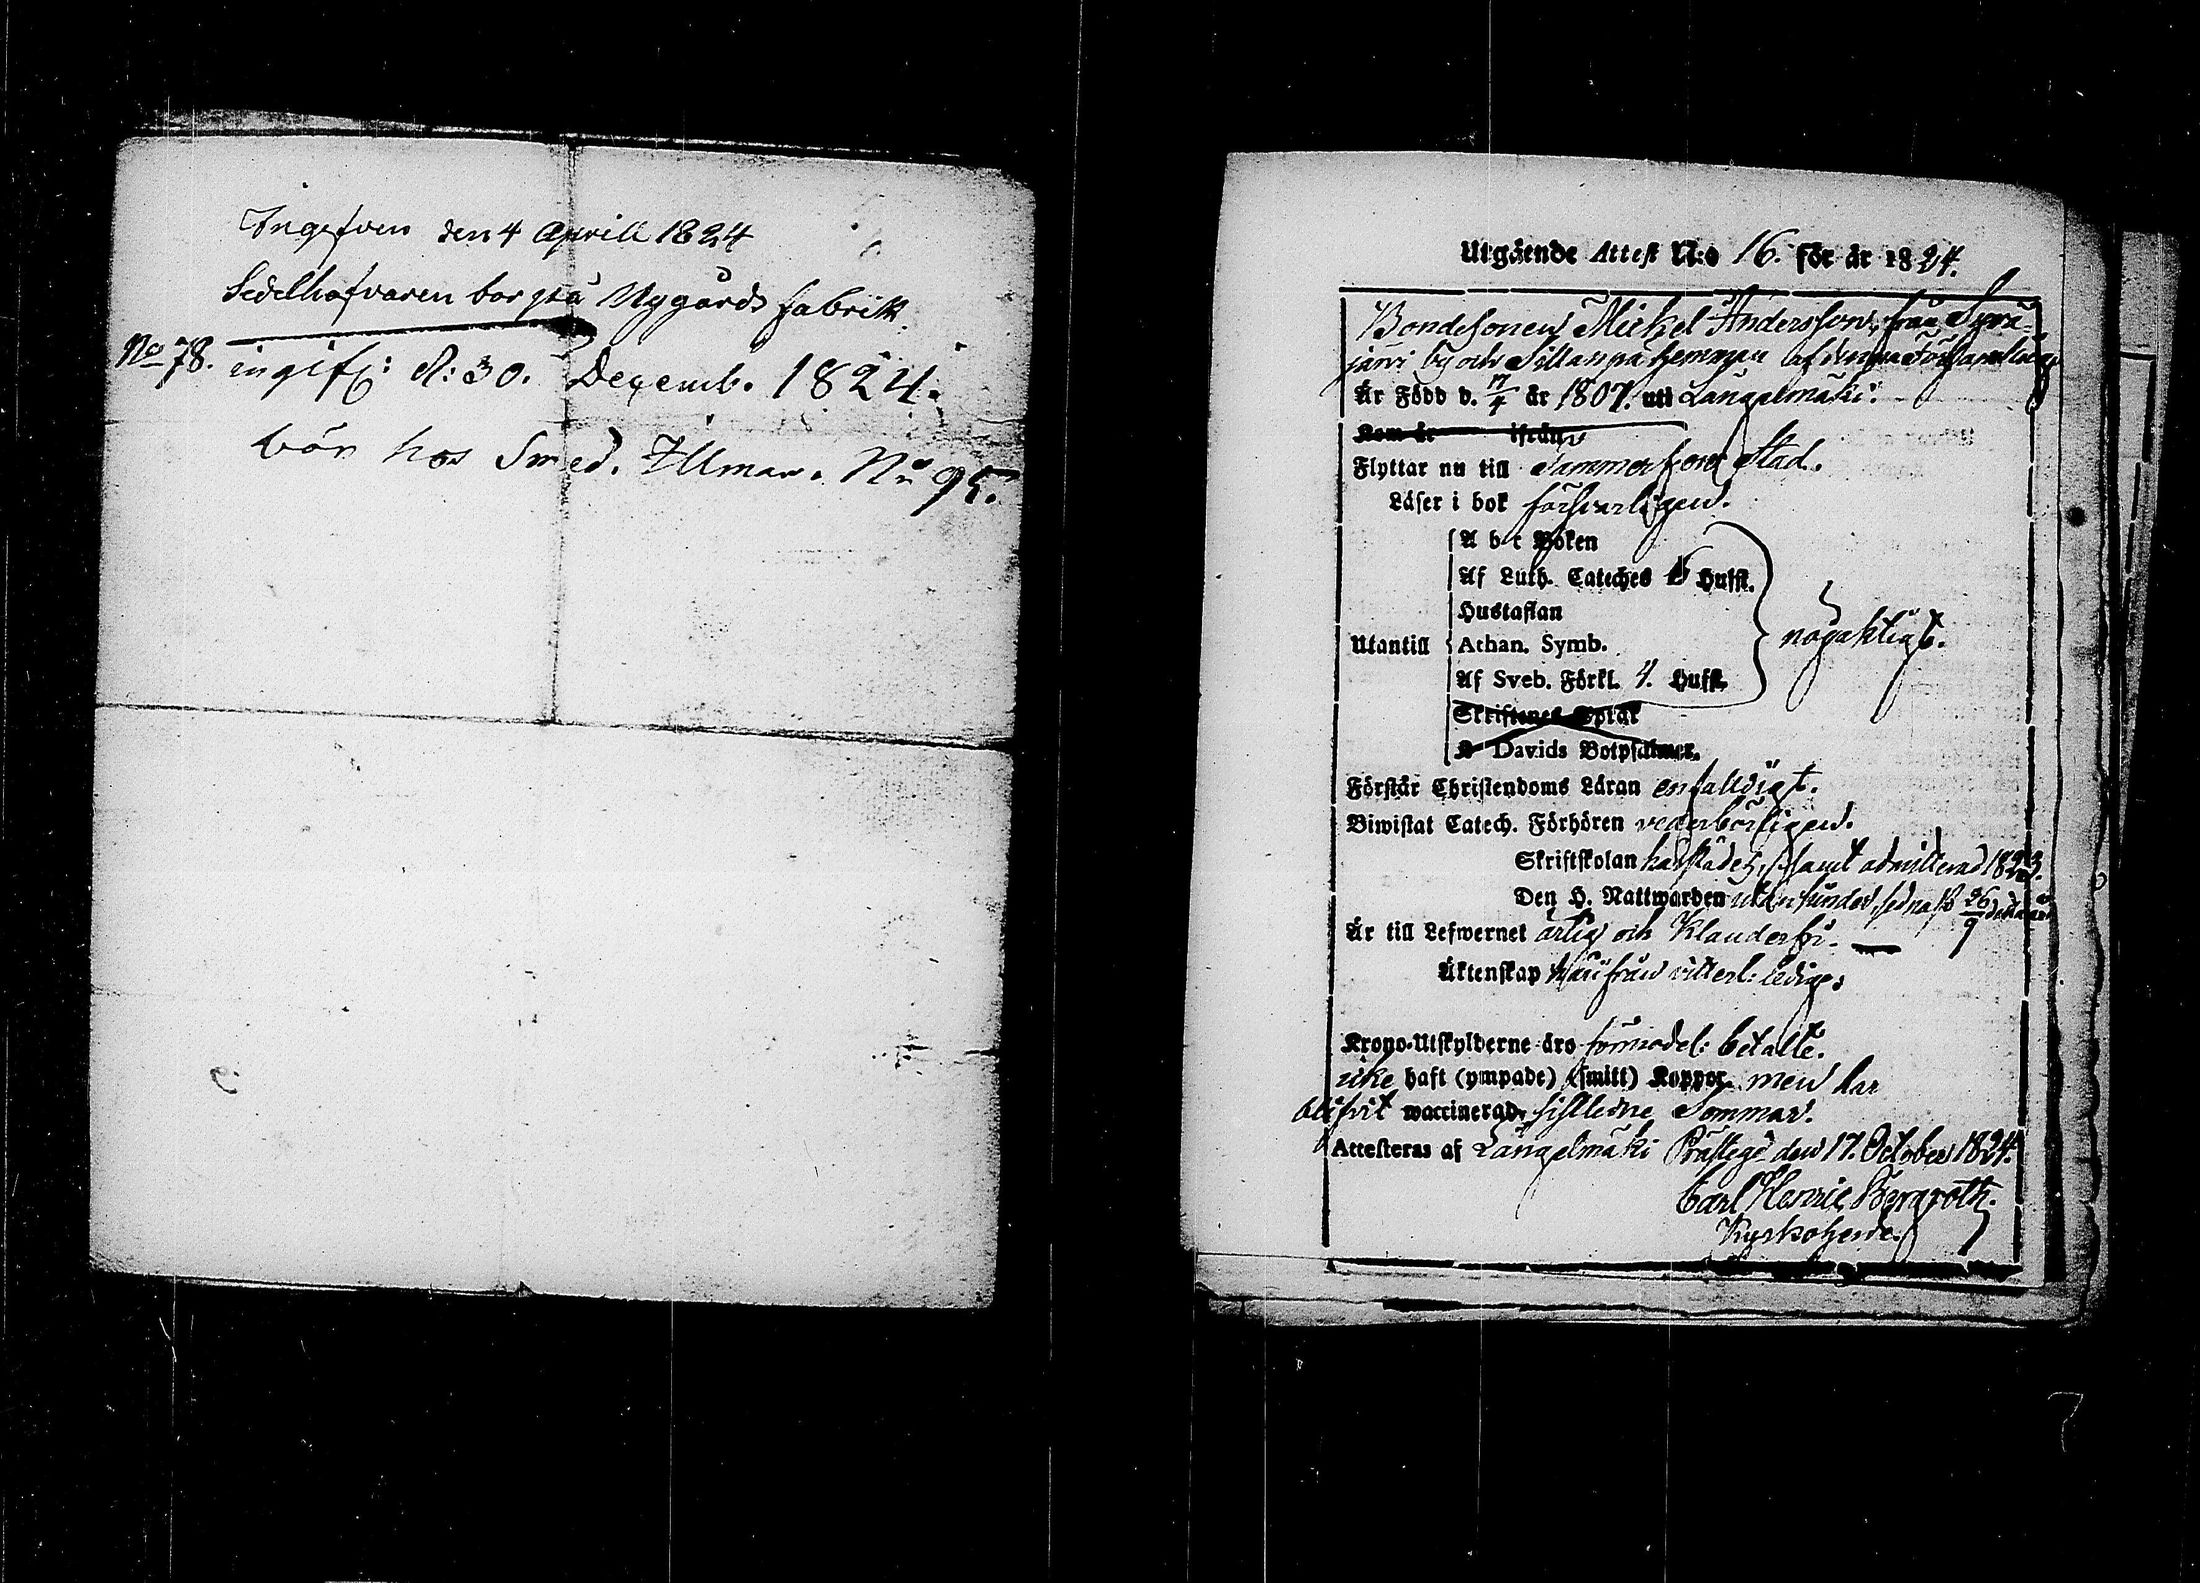 Ingifven den 4 Aprill 1824
Sedelhafvaren bor på Nygårds fabrik
No 78. ingif: d: 30. Decemb. 1824.
bor hos Smed. Illman. No 95.
Utgående Attest N:o 16. för år 1824.
Bondesonen Mickel Andersson, från
järvi by och Sillanpä hemman af denna Församling
Är Född d. 17/4 år 1807. uti Längelmäki.
Kom år ifrån
Flyttar nu till Tammerfors Stad.
Läser i bok försvarligen.
A b c Boken
Af Luth. Cateches 6 Hufst.
Hustaflan
Utantill Athan. Symb. nögaktigt.
Af Sveb. Förkl. 4. Hufst.
Skriftenes Språk
Davids Botpsalmer.
Förstår Christendoms Läran enfaldigt.
Biwistat Catech. Förhören vederbörligen.
Skriftskolan samt admitterad 1823.
Den H. Nattwarden 26/9 detta år
Är till Lefwernet ärlig och Klanderfri.
Äktenskap härifrån vitterl: ledig.
Krono-Utskylderne äro förmodel: betalte.
icke haft (ympade) (smitt) Koppor. men har
blifvit waccinerad, sistledne Sommar.
Attesteras af Längelmäki Prästegd den 17. October 1824.
Carl Henric Bergroth.
Kyrkoherde.